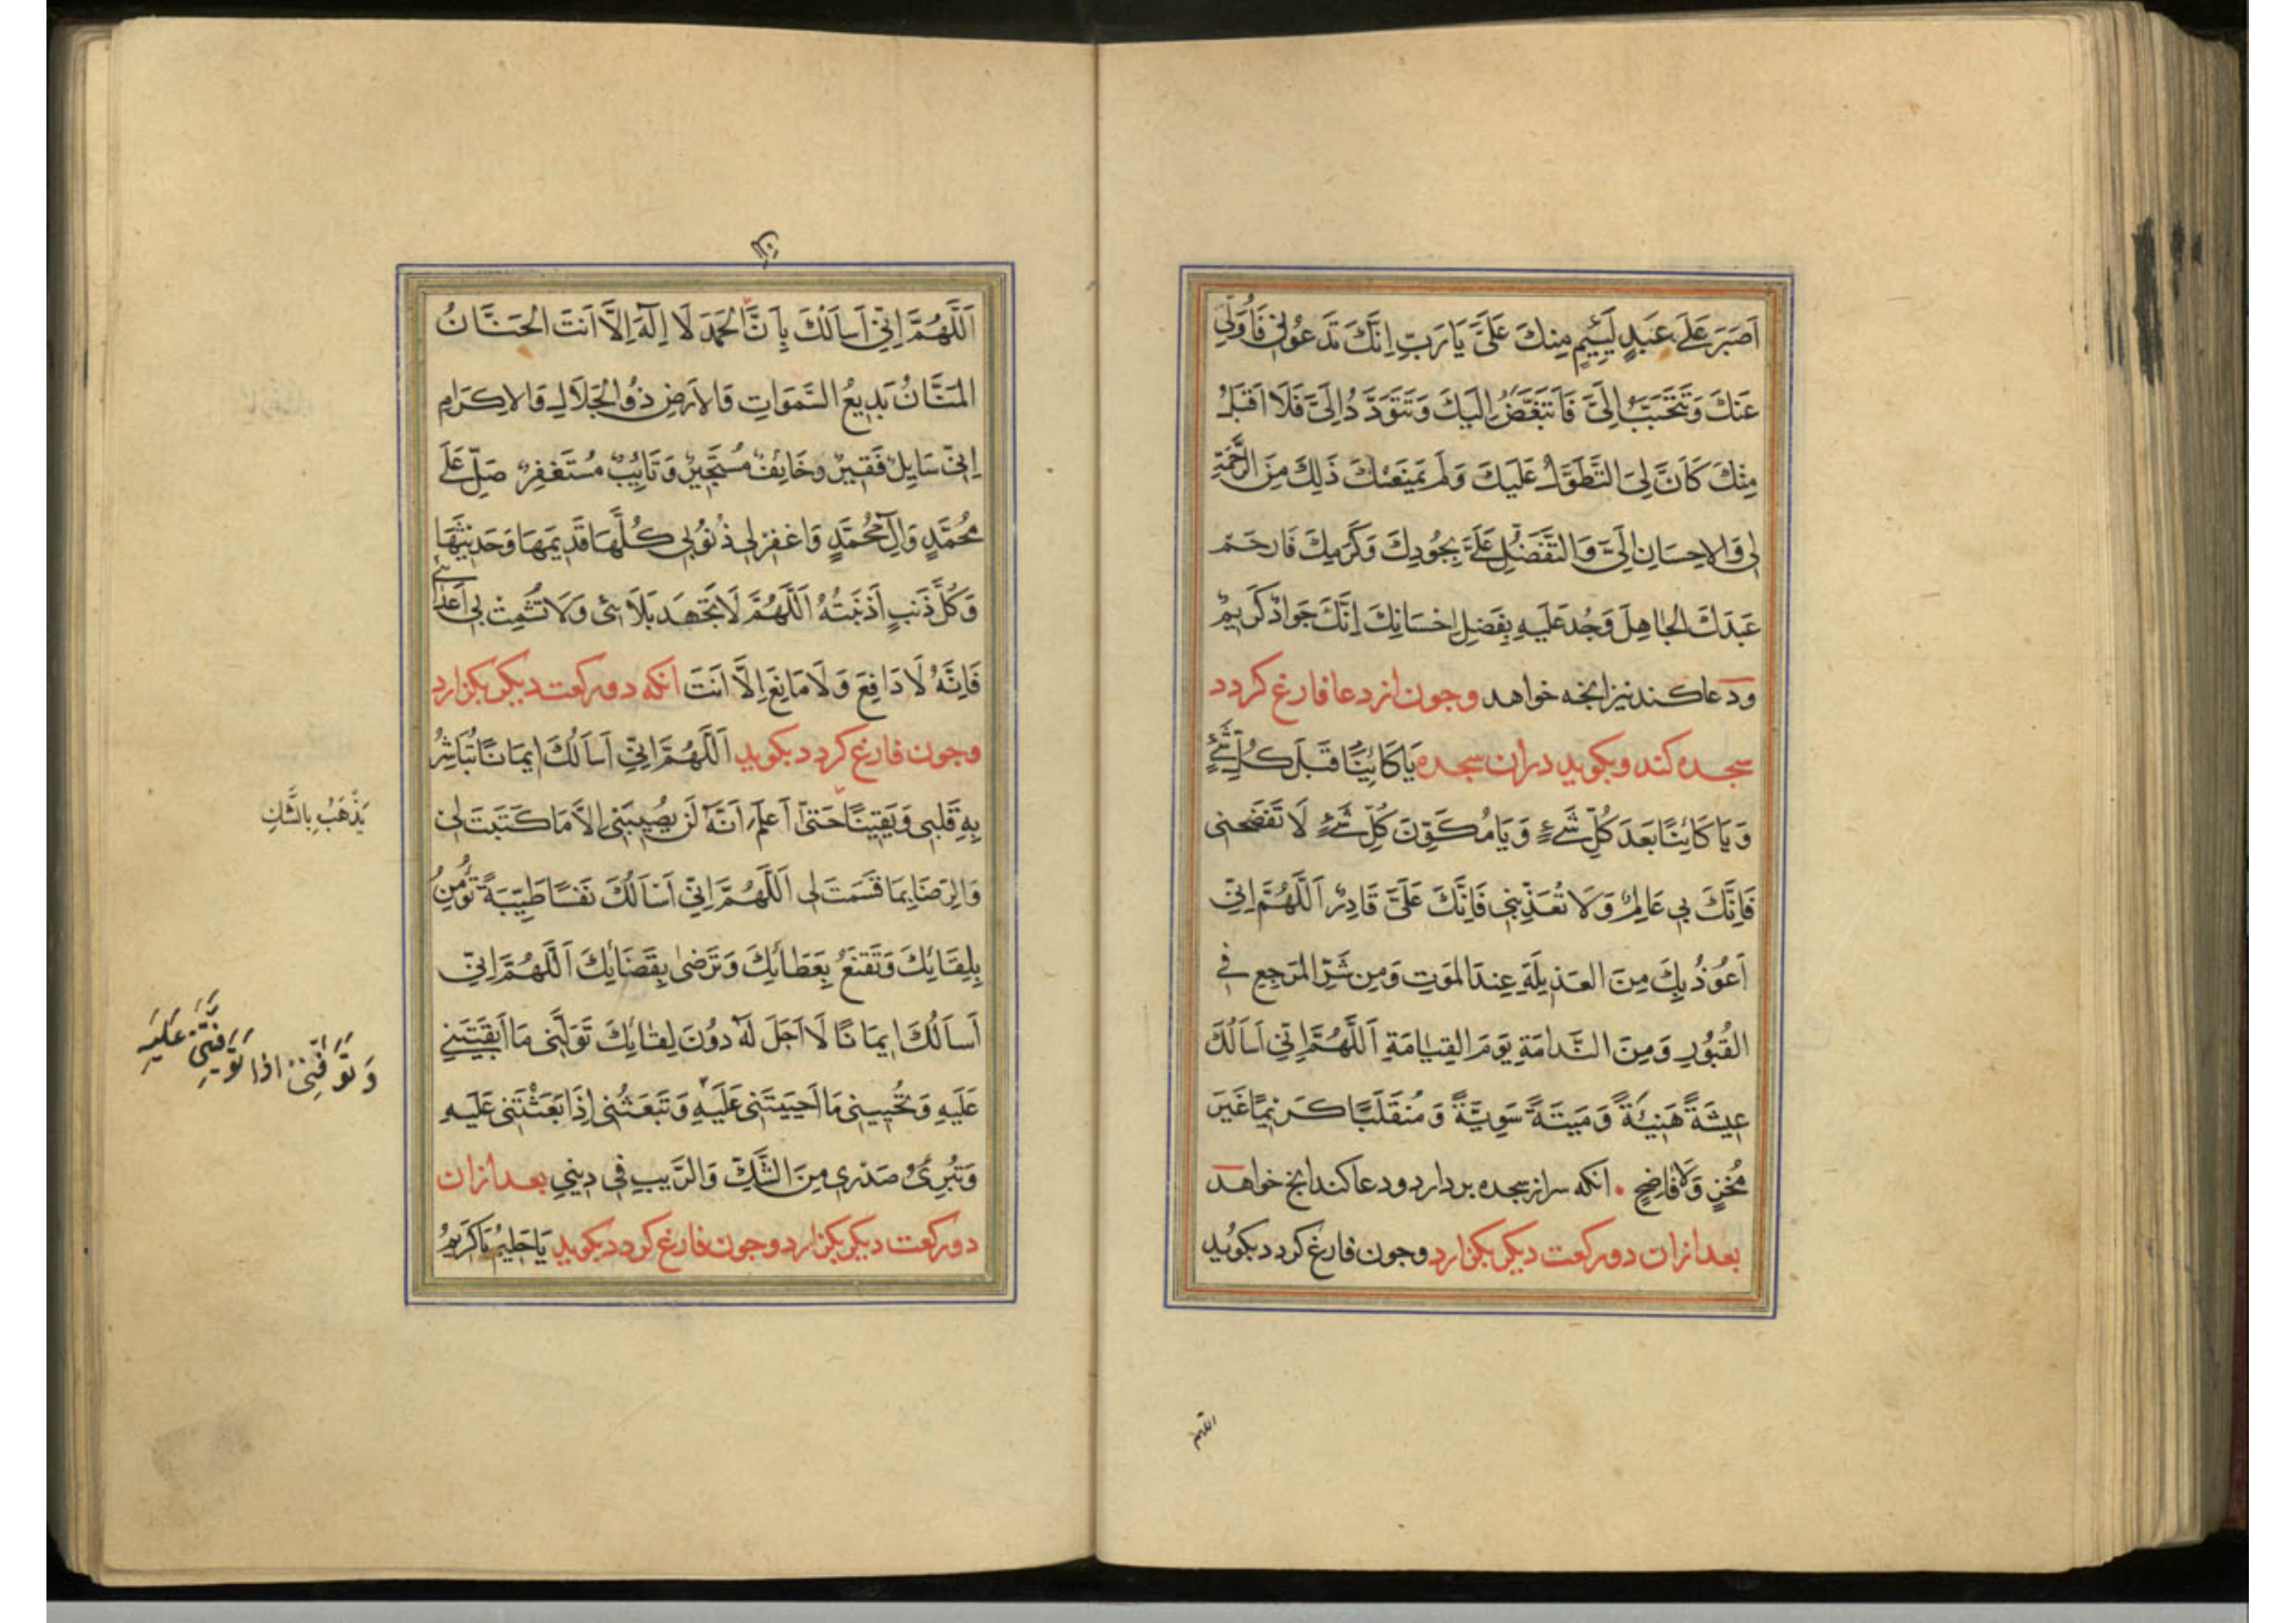 اَصْبَرَ عَلَى عَبْدٍ لَئِيمٍ مِنْكَ عَلَىَّ يَا رَبِّ اِنَّكَ تَدْعُونِى فَاُوَلِّى
عَنْكَ وَتَتَحَبَّبُ اِلَىَّ فَاَتَبَغَّضُ اِلَيْكَ وَتَتَوَدَّدُ اِلَىَّ فَلَا اَقْبَلُ
مِنْكَ كَاَنَّ لِىَ التَّطَوُّلَ عَلَيْكَ وَلَمْ يَمْنَعْكَ ذَلِكَ مِنَ الرَّحْمَةِ
لِى وَالاِحْسَانِ اِلَىَّ وَالتَّفَضُّلِ عَلَىَّ بِجُودِكَ وَكَرَمِكَ فَارْحَمْ
عَبْدَكَ الْجَاهِلَ وَجُدْ عَلَيْهِ بِفَضْلِ اِحْسَانِكَ اِنَّكَ جَوَادٌ كَرِيمٌ
ودعا كند نيز انجه خواهد وجون از دعا فارغ كردد
سجده كند و بكويد دران سجده يَا كَائِنًا قَبْلَ كُلِّ شَىْءٍ
وَيَا كَائِنًا بَعْدَ كُلِّ شَىْءٍ وَيَا مُكَوِّنَ كُلِّ شَىْءٍ لَا تَفْضَحْنِى
فَاِنَّكَ بِى عَالِمٌ وَلَا تُعَذِّبْنِى فَاِنَّكَ عَلَىَّ قَادِرٌ اَللَّهُمَّ اِنِّى
اَعُوذُ بِكَ مِنَ الْعَذِيلَةِ عِنْدَ الْمَوْتِ وَمِنْ شَرِّ الْمَرْجِعِ فِى
الْقُبُورِ وَمِنَ النَّدَامَةِ يَوْمَ الْقِيَامَةِ اَللَّهُمَّ اِنِّى اَسْاَلُكَ
عِيشَةً هَنِيئَةً وَمِيتَةً سَوِيَّةً وَمُنْقَلَبًا كَرِيمًا غَيْرَ
مُخْزٍ وَلَا فَاضِحٍ . انكه سر از سجده بردارد و دعا كند انج خواهد
بعد ازان دو ركعت ديكر بكزارد وجون فارغ كردد بكويد
اللهم
اَللَّهُمَّ اِنِّى اَسْاَلُكَ بِاَنَّ الْحَمْدَ لَا اِلَهَ اِلَّا اَنْتَ الْحَنَّانُ
الْمَنَّانُ بَدِيعُ السَّمَوَاتِ وَالاَرْضِ ذُو الْجَلَالِ وَالاِكْرَامِ
اِنِّى سَايِلٌ فَقِيرٌ وَخَائِفٌ مُسْتَجِيرٌ وَتَايِبٌ مُسْتَغْفِرٌ صَلِّ عَلَى
مُحَمَّدٍ وَالِ مُحَمَّدٍ وَاغْفِرْ لِى ذُنُوبِى كُلَّهَا قَدِيمَهَا وَحَدِيثَهَا
وَكُلَّ ذَنْبٍ اَذْنَبْتُهُ اَللَّهُمَّ لَا تُجْهِدْ بَلَائِى وَلَا تُشْمِتْ بِى اَعْدَائِى
فَاِنَّهُ لَا دَافِعَ وَلَا مَانِعَ اِلَّا اَنْتَ انكه دو ركعت ديكر بكزارد
وجون فارغ كردد بكويد اَللَّهُمَّ اِنِّى اَسْاَلُكَ اِيمَانًا تُبَاشِرُ
بِهِ قَلْبِى وَيَقِينًا حَتَّى اَعْلَمَ اَنَّهُ لَنْ يُصِيبَنِى اِلَّا مَا كَتَبْتَ لِى
يَذْهَبُ بِالشَّكِ
وَالرِّضَا بِمَا قَسَمْتَ لِى اَللَّهُمَّ اِنِّى اَسْاَلُكَ نَفْسًا طَيِّبَةً تُؤْمِنُ
بِلِقَائِكَ وَتَقْنَعُ بِعَطَائِكَ وَتَرْضَى بِقَضَائِكَ اَللَّهُمَّ اِنِّى
اَسْاَلُكَ اِيمَانًا لَا اَجَلَ لَهُ دُونَ لِقَائِكَ تَوَلَّنِى مَا اَبْقَيْتَنِى
وَتَوَفَّنِى اذا تَوَفَّيْتَنِى عَلَيْهِ
عَلَيْهِ وَتُحْيِينِى مَا اَحْيَيْتَنِى عَلَيْهِ وَتَبْعَثُنِى اِذَا بَعَثْتَنِى عَلَيْهِ
وَتُبْرِئُ صَدْرِى مِنَ الشَّكِّ وَالرَّيْبِ فِى دِينِى بعد ازان
دو ركعت ديكر بكزارد وجون فارغ كردد بكويد يَا حَلِيمُ يَا كَرِيمُ